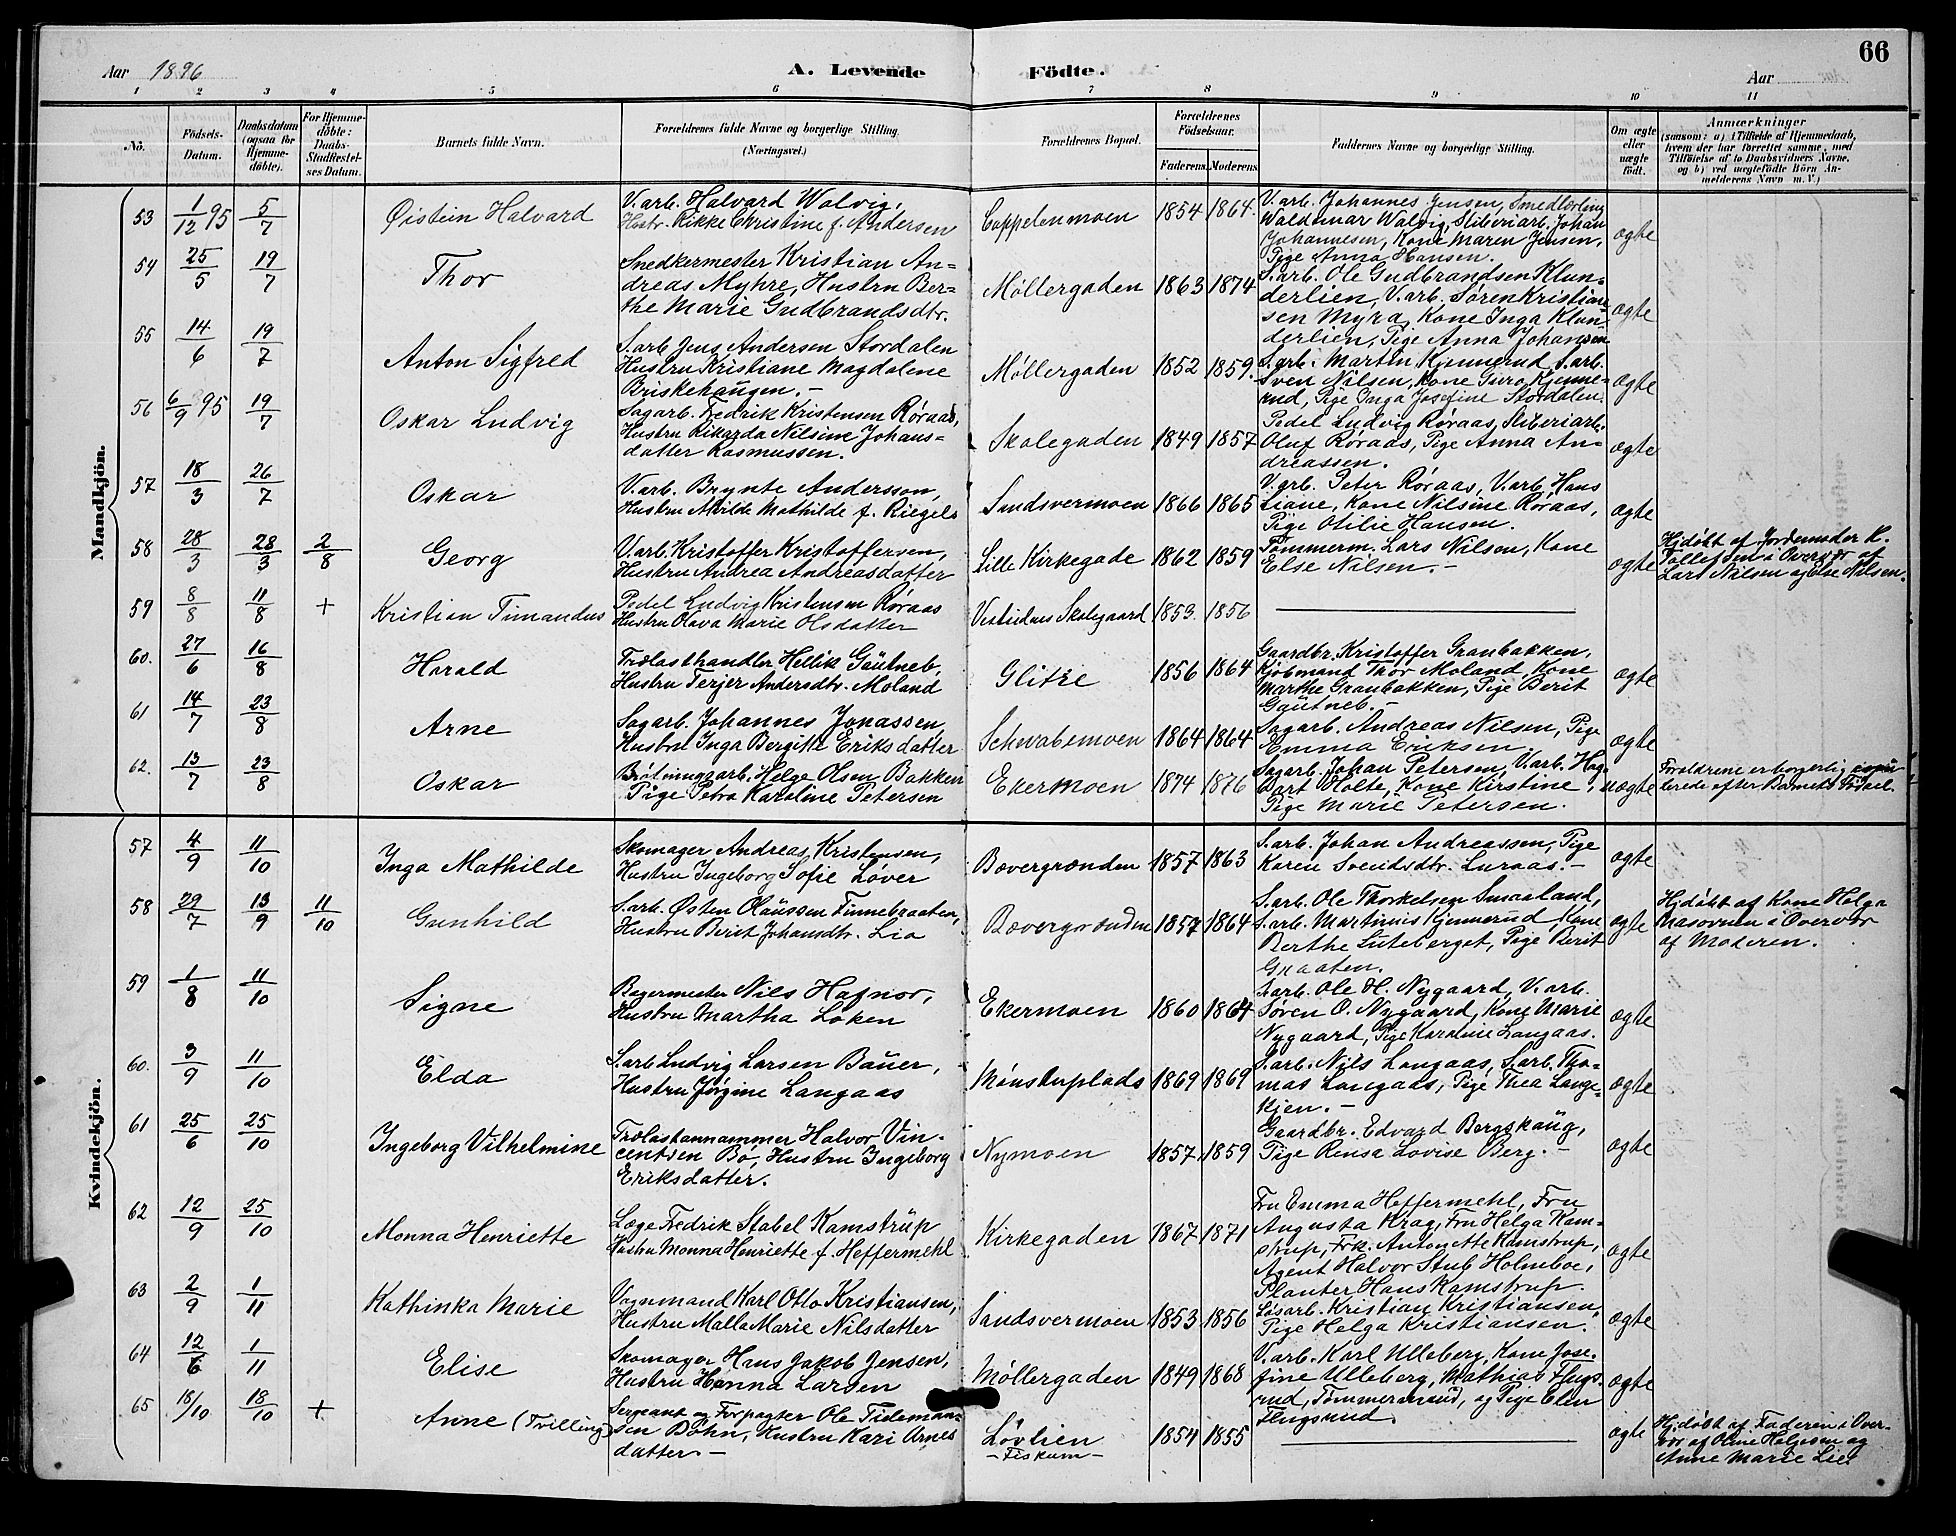 66
Aar 1896
A. Levende Födte.
Aar
1 2 3 4 5 6 7 8 9 10 11
No.
Födsels-Datum.
Daabsdatum (ogsaa for Hjemme-döbte).
For Hjemme-döbte: Daabs-Stadfæstel-ses Datum.
Barnets fulde Navn.
Forældrenes fulde Navne og borgerlige Stilling. (Næringsvei.)
Forældrenes Bopæl.
Forældrenes Födselsaar.
Faderens Moderens
Faddernes Navne og borgerlige Stilling.
Om ægte eller uægte födt.
Anmærkninger
(saasom: a) i Tilfælde af Hjemmedaab, hvem der har forrettet samme, med Tilföielse af to Daabsvidners Navne, og b) ved uægtefödte Börn An-melderens Navn m. V.)
Mandkjön.
53 1/12 95 5/7 Øistein Halvard
V.arb. Halvard Walvig,
Hustr. Rikke Christine f. Andersen
Cappelenmoen 1854 1864
V.arb. Johannes Jensen, Smedlærling
Waldemar Walvig, Sliberiarb. Johan
Johannesen, Kone Maren Jensen,
Pige Anna Hansen.
ægte
54 25/5 19/7 Thor
Snedkermester Kristian An=
dreas Myhre, Hustru Ber=
the Marie Gudbrandsdtr.
Møllergaden 1863 1874
S.arb. Ole Gudbrandsen Klun=
derlien, V.arb. Søren Kristian=
sen Myra, Kone Inga Klun=
derlien, Pige Anna Johansen
ægte
55 14/6 19/7 Anton Sigfred
S.arb. Jens Andersen Stordalen
Hustru Kristiane Magdalene
Briskehaugen.-
Møllergaden 1852 1859.
S.arb. Martin Kjennerud, S.arb.
Sven Nilsen, Kone Guro Kjenne=
rud, Pige Inga Josefine Stordalen.
ægte
56 6/9 95 19/7 Oskar Ludvig
Sagarb. Fredrik Kristensen Røraas,
Hustru Rikarda Nilsine Johans=
datter Rasmussen.
Skolegaden 1849 1857
Pedel Ludvig Røraas, Sliberiarb.
Oluf Røraas, Pige Anna An=
dreassen.
ægte
57 18/3 26/7 Oskar
V.arb. Brynte Andersson,
Hustru Alvilde Mathilde f. Riegels
Sandsvermoen 1866 1865
V.arb. Peter Røraas, V.arb. Hans
Liane, Kone Nilsine Røraas,
Pige Otilie Hansen.
ægte
58 28/3 28/3 2/8 Georg
V.arb. Kristoffer Kristoffersen,
Hustru Andrea Andreasdatter
Lille Kirkegade 1862 1859
Tømmerm. Lars Nilsen, Kone
Else Nilsen.-
ægte
Hjdøbt af Jordemoder K.
Tollefsen i Overvær af
Lars Nilsen og Else Nilsen.
59 8/8 11/8 + Kristian Timandus
Pedel Ludvig Kristensen Røraas
Hustru Olava Marie Olsdatter
Vestsidens Skolegaard 1853. 1856
60. 27/6 16/8 Harald
Trælasthandler Hellik Gäutneb,
Hustru Terjer Andersdtr. Moland
Glitre 1856 1864
Gaardbr. Kristoffer Granbakken,
Kjøbmand Thor Moland, Kone
Marthe Granbakken, Pige Berit
Gäutneb.-
ægte
61 14/7 23/8 Arne
Sagarb. Johannes Jonassen,
Hustru Inga Bergitte Eriksdatter
Schwabemoen 1864 1864
Sagarb. Andreas Nilsen, Pige
Emma Eriksen.
ægte
62. 13/7 23/8 Oskar
Brøtningsarb. Helge Olsen Bakken
Pige Petra Karoline Petersen
Ekermoen 1874 1876
Sagarb. Johan Petersen, V.arb. Hag=
bart Holte, Kone Kirstine,
Pige Marie Petersen.
uægte
Forældrene er borgerlig copu
lerede efter Barnets Fødsel.
Kvindekjön.
57 4/9 11/10 Inga Mathilde
Skomager Andreas Kristensen,
Hustru Ingeborg Sofie Løver
Bævergrænden 1857 1863
S.arb. Johan Andreassen, Pige
Karen Svendsdtr. Luraas.-
ægte
58 29/7 13/9 11/10 Gunhild
S.arb. Østen Olaussen Finnebraaten,
Hustru Berit Johansdtr. Lia
Bævergrænden 1857 1864
S.arb. Ole Thorkelsen Smaaland,
S.arb. Martinius Kjennerud, Kone
Berthe Luteberget, Pige Berit
Graaten.
ægte
Hjdøbt af Kone Helga
Masovnen i Overvær
af Moderen.
59 1/8 11/10 Signe
Bagermester Nils Hafnor,
Hustru Martha Løken
Ekermoen 1860 1864
S.arb. Ole H. Nygaard, V.arb.
Søren O. Nygaard, Kone Marie
Nygaard, Pige Karoline Langaas.
ægte
60. 3/9 11/10 Elda
S.arb. Ludvig Larsen Bäuer,
Hustru Jørgine Langaas
Mønstuplads 1869 1869
S.arb. Nils Langaas, S.arb. Tho=
mas Langaas, Pige Thea Lange=
kjen.-
ægte
61 25/6 25/10 Ingeborg Vilhelmine
Trælastannammer Halvor Vin-
centsen Bø, Hustru Ingeborg
Eriksdatter.
Nymoen 1857 1859
Gaardbr. Edvard Bergskäug,
Pige Rensa Lovise Berg.-
ægte
62 12/9 25/10 Monna Henriette
Læge Fredrik Stabel Kamstrup
Hustru Monna Henriette f. Heffermehl
Kirkegaden 1867 1871
Fru Emma Heffermehl, Fru
Augusta Krag, Fru Helga Kam=
strup, Frk. Antonette Kamstrup,
Agent Halvor Stub Holmboe,
Planter Hans Kamstrup.
ægte
63 2/9 1/11 Kathinka Marie
Vognmand Karl Otto Kristiansen,
Hustru Malla Marie Nilsdatter
Sandsvermoen 1853 1856
Løsarb. Kristian Kristiansen,
Pige Helga Kristiansen.
ægte
64 12/6 1/11 Elise
Skomager Hans Jakob Jensen,
Hustru Hanna Larsen
Møllergaden 1849 1868
V.arb. Karl Ulleberg, Kone Jose-
fine Ulleberg, Mathias Flugs-
rud, Tømmermand, og Pige Elen
Flugsrud.
ægte
65 18/10 18/10 + Anne (Trilling)
Sergeant og Forpagter Ole Tideman=
sen Bøhn, Hustru Kari Arnes
datter.-
Løvlien
-Fiskum-
1854 1855
ægte
Hjdøbt af Faderen i Over-
vær af Oline Helgesen og
Anne Marie Lie.